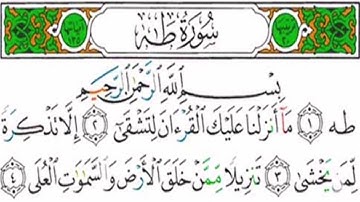 سُورَةُ طه
بِسْمِ اللَّهِ الرَّحْمَٰنِ الرَّحِيمِ
طه ١ مَا أَنْزَلْنَا عَلَيْكَ الْقُرْءَانَ لِتَشْقَىٰ ٢ إِلَّا تَذْكِرَةً
لِمَنْ يَخْشَىٰ ٣ تَنْزِيلًا مِمَّنْ خَلَقَ الْأَرْضَ وَالسَّمَٰوَٰتِ الْعُلَى ٤